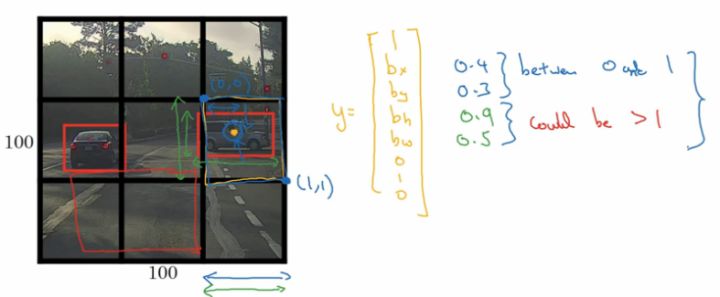 (0,0)
100
(1,1)
100
y=
1
bx
by
bh
bw
0
1
0
0.4
0.3
between 0 and 1
0.9
0.5
could be >1